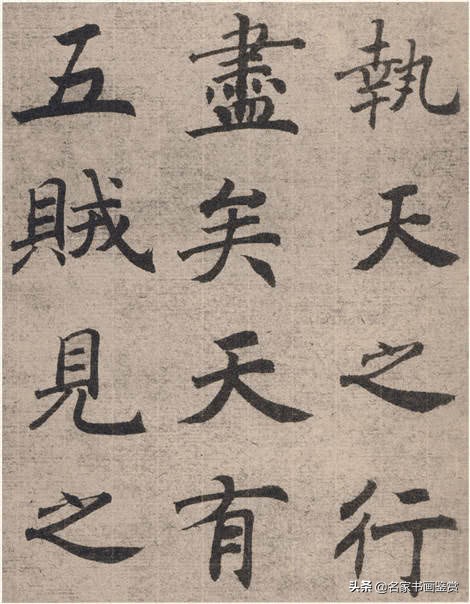 執天之行
盡矣天有
五賊見之
头条 @名家书画鉴赏